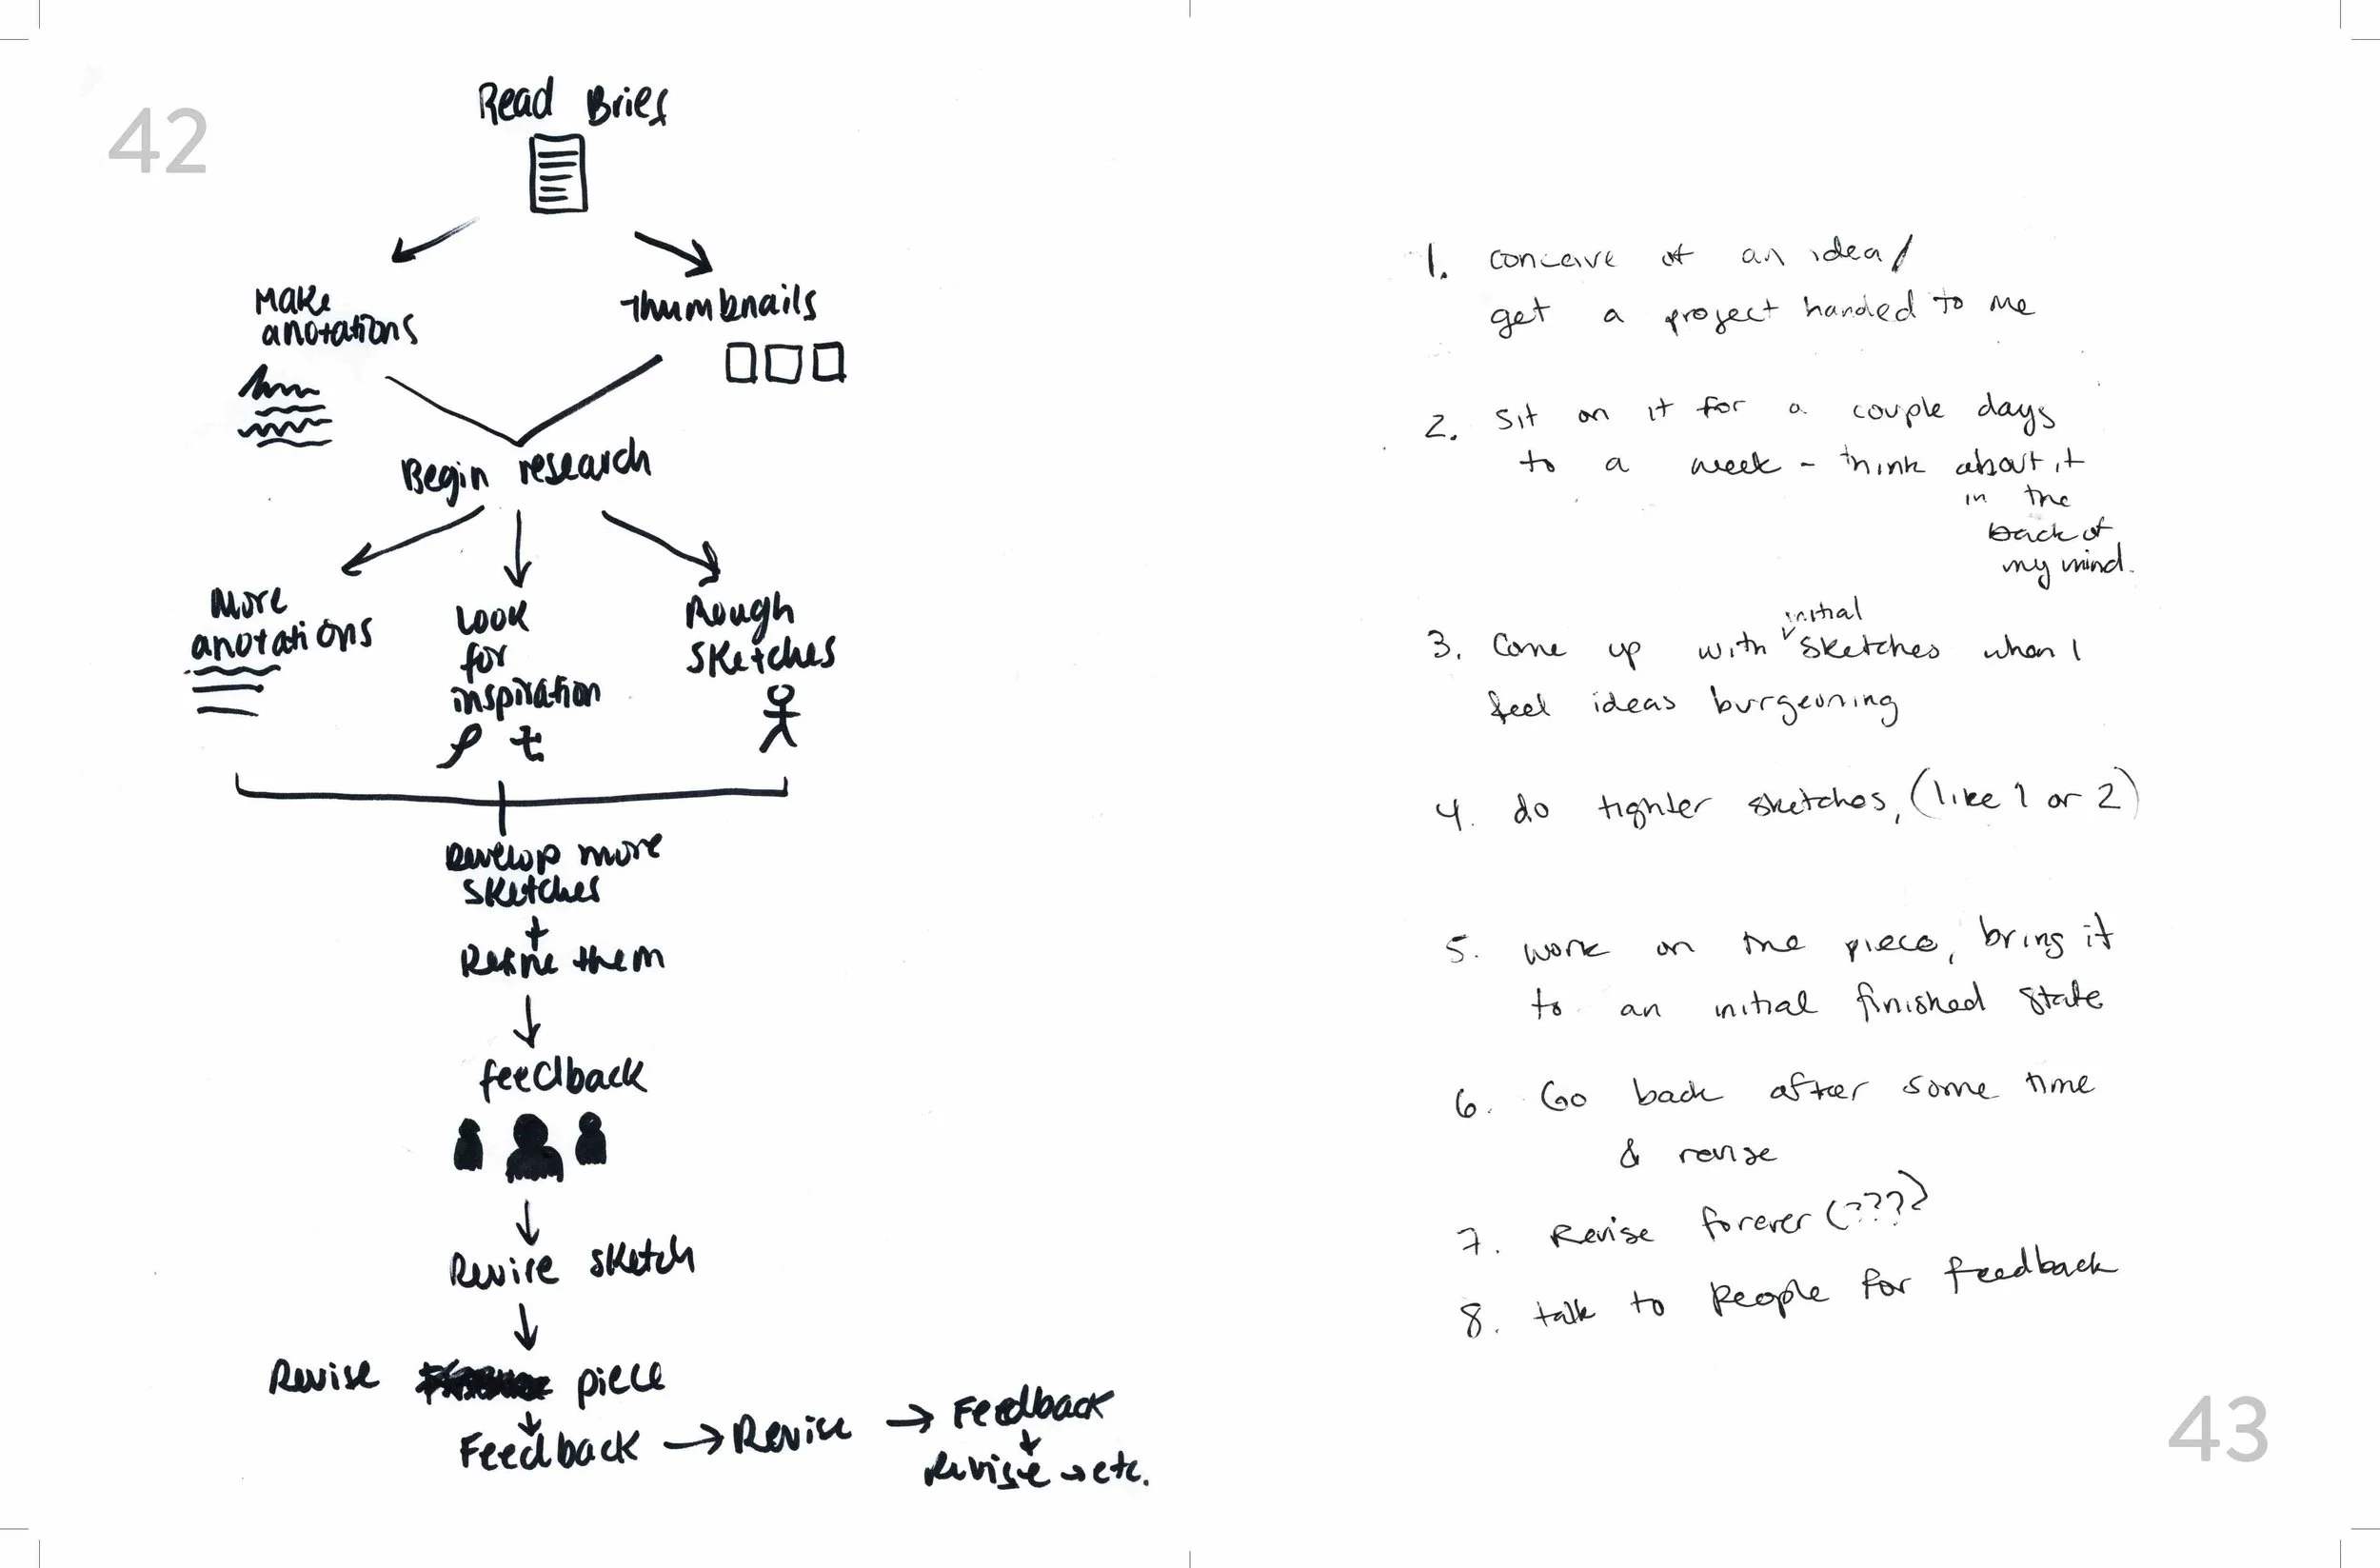 42
Read Brief
Make
anotations
Thumbnails
Begin research
More
anotations
Look
for
inspiration
Rough
Sketches
Develop more
sketches
+
Refine them
feedback
Revise sketch
Revise piece
Feedback → Revise → Feedback
Revise → etc.
1. conceive of an idea/
get a project handed to me
2. sit on it for a couple days
to a week - think about it
in the
back of
my mind.
initial
3. Come up with sketches when I
feel ideas burgeoning
4. do tighter sketches, (like 1 or 2)
5. work on the piece, bring it
to an initial finished state
6. Go back after some time
& revise
7. Revise forever (???)
8. talk to people for feedback
43